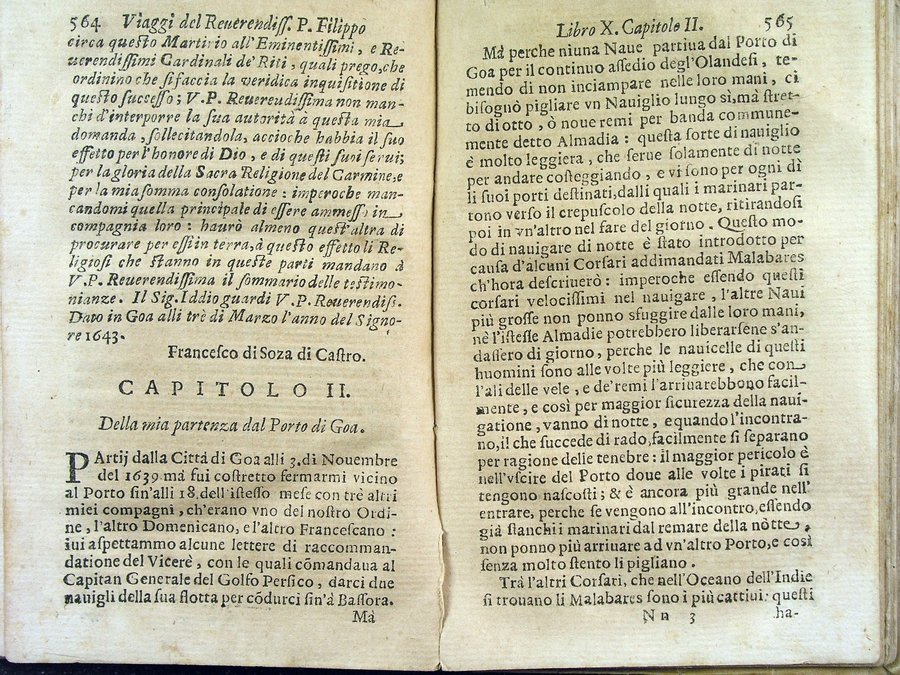 564 Viaggi del Reuerendiss. P. Filippo
circa questo Martirio all'Eminentissimi, e Re-
uerendissimi Cardinali de' Riti, quali prego, che
ordinino che si faccia la veridica inquisitione di
questo successo; V.P. Reuereudissima non man-
chi d'interporre la sua autorità à questa mia
domanda, sollecitandola, accioche habbia il suo
effetto per l'honore di Dio, e di questi suni serui;
per la gloria della Sacra Religione del Carmine, e
per la mia somma consolatione: imperoche man-
candomi quella principale di essere ammesso in
compagnia loro: haurò almeno quest'altra di
procurare per essi in terra, à questo effetto li Re-
ligiosi che stanno in queste parti mandano à
V.P. Reuerendissima il sommario delle testimo-
nianze. Il Sig. Iddio guardi V.P. Reuerendiss.
Dato in Goa alli trè di Marzo l'anno del Signo-
re 1643.
Francesco di Soza di Castro.
CAPITOLO II.
Della mia partenza dal Porto di Goa.
PArtij dalla Città di Goa alli 3. di Nouembre
del 1639 mà fui costretto fermarmi vicino
al Porto sin'alli 18. dell'istesso mese con trè altri
miei compagni, ch'erano vno del nostro Ordi-
ne, l'altro Domenicano, e l'altro Francescano:
iui aspettammo alcune lettere di raccomman-
datione del Vicerè, con le quali comandaua al
Capitan Generale del Golfo Persico, darci due
nauigli della sua flotta per cõdurci sin'à Bassora.
Mà
Libro X. Capitolo II. 565
Mà perche niuna Naue partiua dal Porto di
Goa per il continuo assedio degl'Olandesi, te-
mendo di non inciampare nelle loro mani, ci
bisognò pigliare vn Nauiglio lungo sì, mà stret-
to di otto, ò noue remi per banda commune-
mente detto Almadia: questa sorte di nauiglio
è molto leggiera, che serue solamente di notte
per andare costeggiando, e vi sono per ogni dì
li suoi porti destinati, dalli quali i marinari par-
tono verso il crepuscolo della notte, ritirandosi
poi in vn'altro nel fare del giorno. Questo mo-
do di nauigare di notte è stato introdotto per
causa d'alcuni Corsari addimandati Malabares
ch'hora descriuerò: imperoche essendo questi
corsari velocissimi nel nauigare, l'altre Naui
più grosse non ponno sfuggire dalle loro mani,
nè l'istesse Almadie potrebbero liberarsene s'an-
dassero di giorno, perche le nauicelle di questi
huomini sono alle volte più leggiere, che con
l'ali delle vele, e de' remi l'arriuarebbono facil-
mente, e così per maggior sicurezza della naui-
gatione, vanno di notte, e quando l'incontra-
no, il che succede di rado, facilmente si separano
per ragione delle tenebre: il maggior pericolo è
nell'vscire del Porto doue alle volte i pirati si
tengono nascosti; & è ancora più grande nell'
entrare, perche se vengono all'incontro, essendo
già stanchi i marinari dal remare della nòtte,
non ponno più arriuare ad vn'altro Porto, e così
senza molto stento li pigliano.
Trà l'altri Corsati, che nell'Oceano dell'Indie
si trouano li Malabares sono i più cattiui: questi
N n 3 ha-